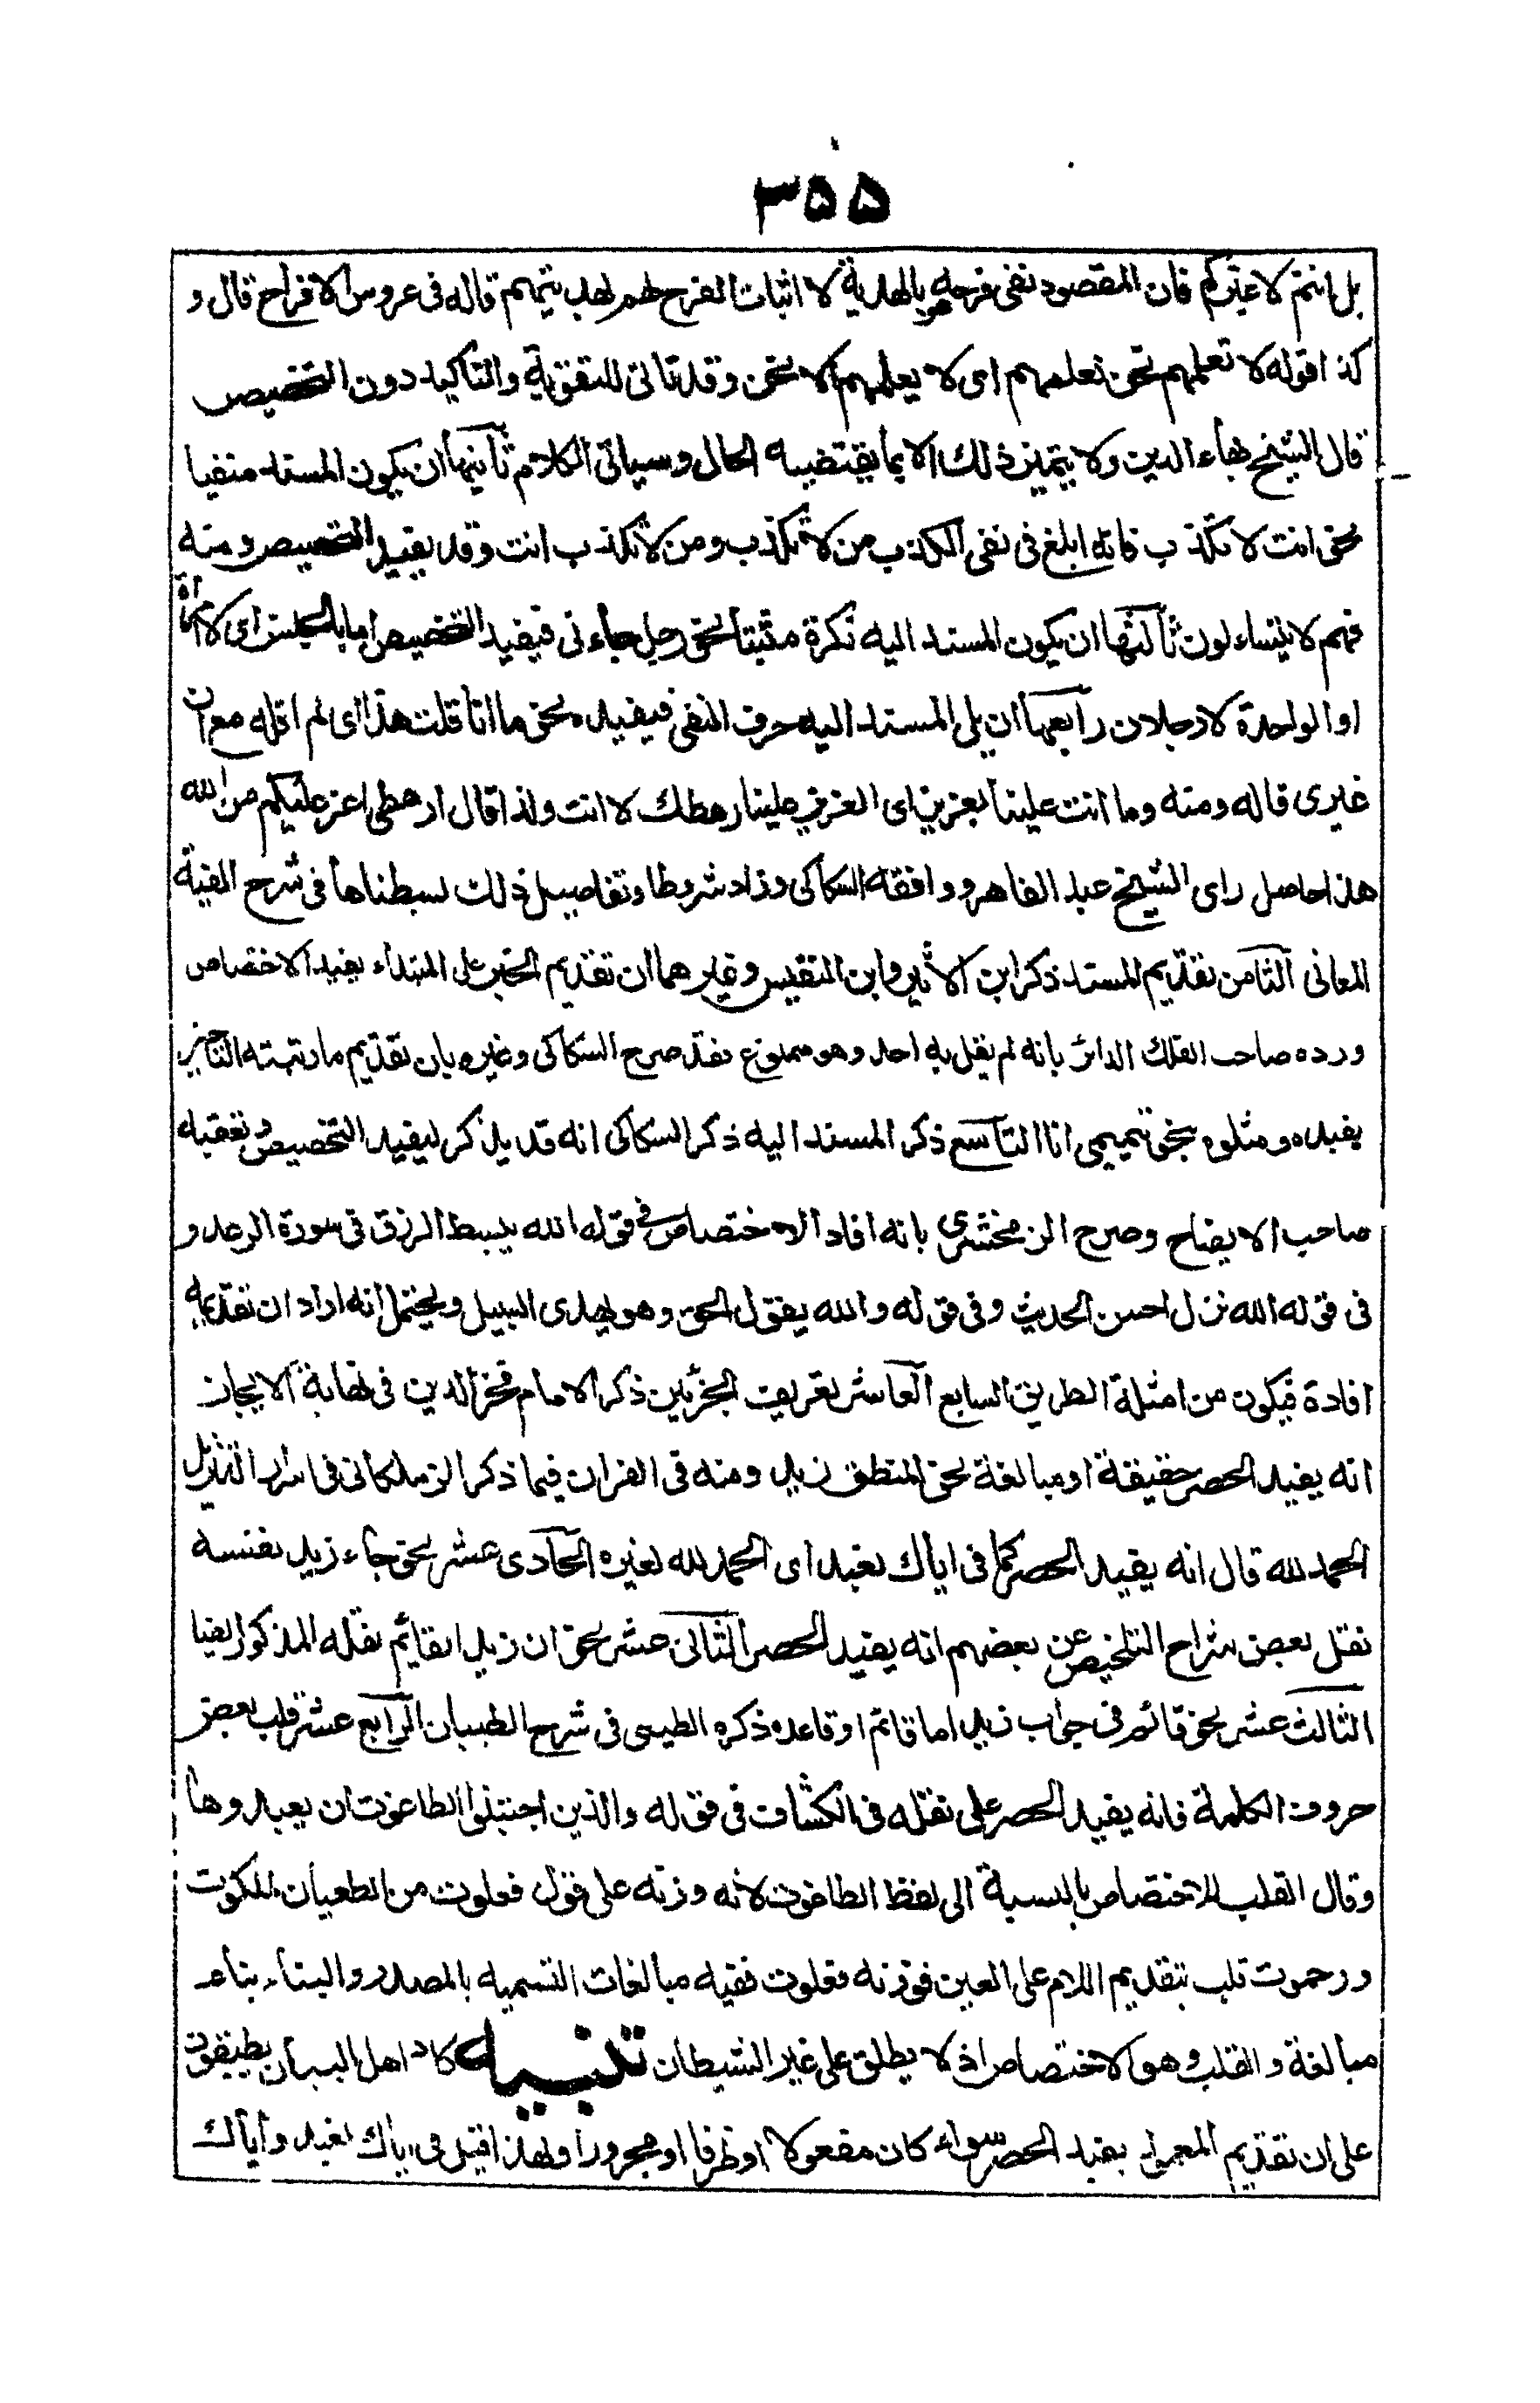 ٣٥٥
بل انتم لا غيركم فان المقصود نفى فرحه هو بالهدية لا اثبات الفرح لهم بهديتهم قاله فى عروس الافراح قال و
كذا قوله لا تعلمهم نحن نعلمهم اى لا يعلمهم الا نحن وقد تاتى للتقوية والتاكيد دون التخصيص
قال الشيخ بهاء الدين ولا يتميز ذلك الا بما يقتضيه الحال وسياق الكلام ثانيها ان يكون المسند منفيا
نحو انت لا تكذب فانه ابلغ فى نفى الكذب من لا تكذب ومن لا تكذب انت وقد يفيد التخصيص ومنه
فهم لا يتساءلون ثالثها ان يكون المسند اليه نكرة مثبتا نحو رجل جاءنى فيفيد التخصيص اما بالجنس اى لا امراة
او الواحدة لا رجلان رابعها ان يلى المسند اليه حرف النفى فيفيده نحو ما انا قلت هذا اى لم اقله مع ان
غيرى قاله ومنه وما انت علينا بعزيز اى العزيز علينا رهطك لا انت ولذا قال ارهطى اعز عليكم من الله
هذا حاصل راى الشيخ عبد القاهر ووافقه السكاكى وزاد شروطا وتفاصيل ذلك بسطناها فى شرح الفية
المعانى الثامن تقديم المسند ذكر ابن الاثير وابن النفيس وغيرهما ان تقديم الخبر على المبتداء يفيد الاختصاص
ورده صاحب الفلك الدائر بانه لم يقل به احد وهو ممنوع فقد صرح السكاكى وغيره بان تقديم ما رتبته التاخير
يفيده ومثلوه بنحو تميمى انا التاسع ذكر المسند اليه ذكر السكاكى انه قد يذكر ليفيد التخصيص وتعقبه
صاحب الايضاح وصرح الزمخشرى بانه افاد الاختصاص فى قوله الله يبسط الرزق فى سورة الرعد و
فى قوله الله نزل احسن الحديث وفى قوله والله يقول الحق وهو يهدى السبيل ويحتمل انه اراد ان تقديمه
افادة فيكون من امثلة الطريق السابع العاشر تعريف الجزئين ذكر الامام فخر الدين فى نهاية الايجاز
انه يفيد الحصر حقيقة او مبالغة نحو المنطلق زيد ومنه فى القران فيما ذكر الزملكانى فى اسرار التنزيل
الحمد لله قال انه يفيد الحصر كما فى اياك نعبد اى الحمد لله لغيره الحادى عشر نحو جاء زيد نفسه
نقل بعض شراح التلخيص عن بعضهم انه يفيد الحصر الثانى عشر نحو ان زيد القائم نقله المذكور ايضا
الثالث عشر نحو قائم فى جواب زيد اما قائم او قاعد ذكره الطيبى فى شرح الطيبيان الرابع عشر قلب بعض
حروف الكلمة فانه يفيد الحصر على نقله فى الكشاف فى قوله والذين اجتنبوا الطاغوت ان يعبدوها
وقال القلب للاختصاص بالنسبة الى لفظ الطاغوت لانه وزنه على قول فعلوت من الطغيان كملكوت
ورحموت قلب بتقديم اللام على العين فوزنه فعلوت ففيه مبالغات التسمية بالمصدر والبناء بناء
مبالغة والقلب وهو لاختصاص اذ لا يطلق على غير الشيطان تنبيه كاد اهل البيان يطبقون
على ان تقديم المعمول يفيد الحصر سواء كان مفعولا او ظرفا او مجرورا ولهذا قيل فى اياك نعبد واياك